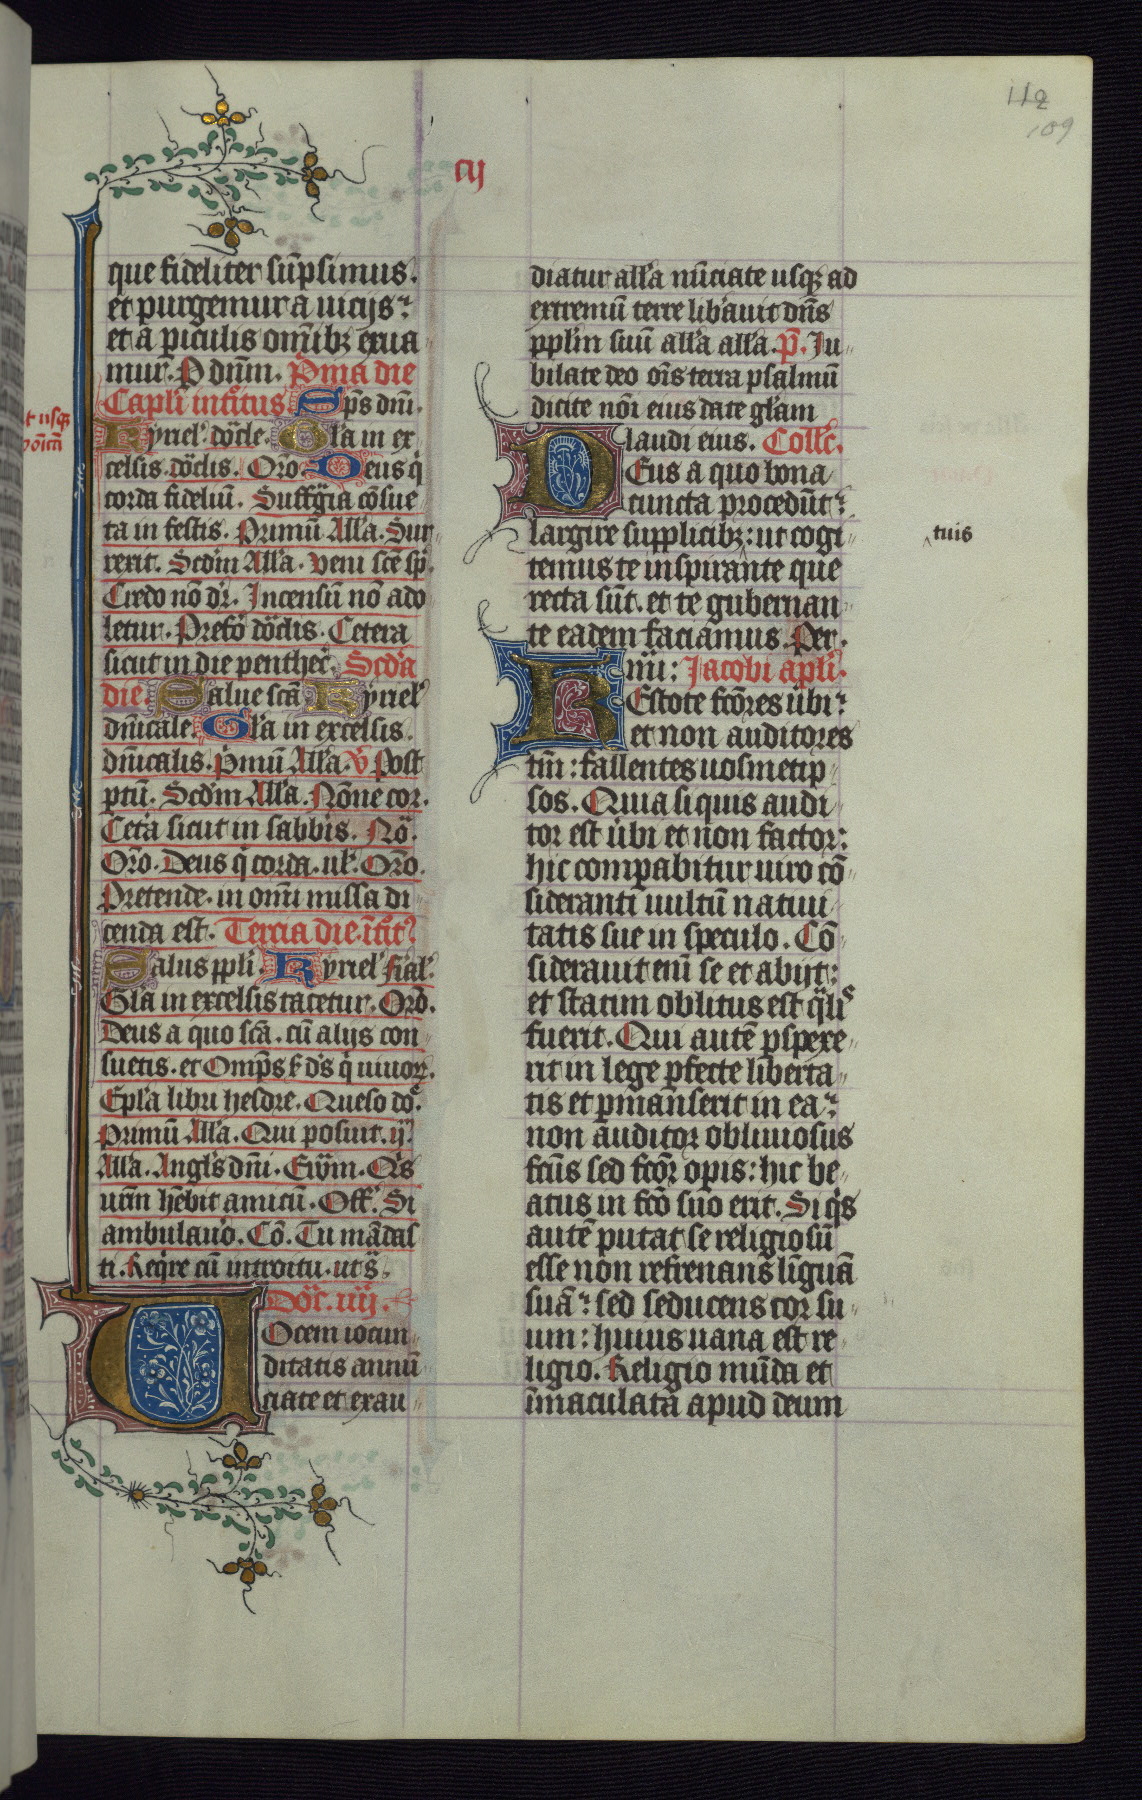 112
109
cij
que fideliter su̅psimus.
et purgemur a uicijs:
et a p̲iculis om̅ib; exua
mur. P dn̅m. P̊ma die
Capl̅i int̊itus. Sp̅s dn̅i.
Kyriel' do̅cle. Gl̅a in ex
celsis. do̅clis. Or̅o. Deus q̇
corda fideliu̅. Suffr̅gia co̅sue
ta in festis. Primu̅ All̅a. Sur
rexit. Scd̅m All̅a. Veni sc̅e sp̅.
Credo no̅ dr̅. Incensu̅ no̅ ado
letur. Prefo̅ do̅clis. Cetera
sicut in die penthec̅. Scd̅a
die. Salue sc̅a Kyriel'
dn̅icale. Gl̅a in excelsis.
dn̅icalis. P̊mu̅ All̅a. V̊ Post
p̲tu̅. Scd̅m All̅a. No̅ne cor.
Cet̅a sicut in sabb̅is. No̅.
Or̅o. Deus q̇ corda. ul̅. Or̅o.
Pretende. in om̅i missa di
cenda est. Tercia die. i̅t̊it̊
Salus pp̅li. Kyriel' fial̅.
Gl̅a in excelsis tacetur. Or̅o.
Deus a quo sc̅a. cu̅ alijs con
suetis. et Omp̅s s̅ ds̅ q̇ uiuoꝝ.
Epl̅a libri hesdre. Queso do̅.
Primu̅ All̅a. Qui posuit. ij̊.
All̅a. Angl̅s dn̅i. Ew̅m. Q̇s
urm̅ he̅bit amicu̅. Off̅. Si
ambulau̅o. Co̅. Tu ma̅das
ti. Req̇re cu̅ introitu. ut s̅.
Do̅c. iiij.
Uocem iocun
ditatis annu̅
ciate et exau
diatur all̅a nu̅ciate usq; ad
extremu̅ terre lib̅auit dn̅s
ppl̅m suu̅ all̅a all̅a. p̅. Ju
bilate deo oi̅s terra psalmu̅
dicite noi̅ eius date gl̅am
laudi eius. Coll̅c.
Deus a quo bona
cuncta procedu̅t:
largire supplicib;: ut cogi
tuis
temus te inspirante que
recta su̅t. et te gubernan
te eadem faciamus. Per.
Jacobi apl̅i.
imi:
Estote fc̅ores u̅bi:
et non auditores
tm̅: fallentes uosmetip
sos. Quia si quis audi
tor est u̅bi et non factor:
hic comp̲abitur uiro co̅
sideranti uultu̅ natiui
tatis sue in speculo. Co̅
siderauit eni̅ se et abijt:
et statim oblitus est q̅lis
fuerit. Qui aute̅ p̲spexe
rit in lege p̲fecte liberta
tis et p̲ma̅nserit in ea:
non auditor obliuiosus
fc̅us sed fc̅or op̲is: hic be
atus in fc̅o suo erit. Si q̇s
aute̅ putat se religiosu̅
esse non refrenans li̅gua̅
sua̅: sed seducens cor su
um: huius uana est re
ligio. Religio mu̅da et
i̅maculata apud deum